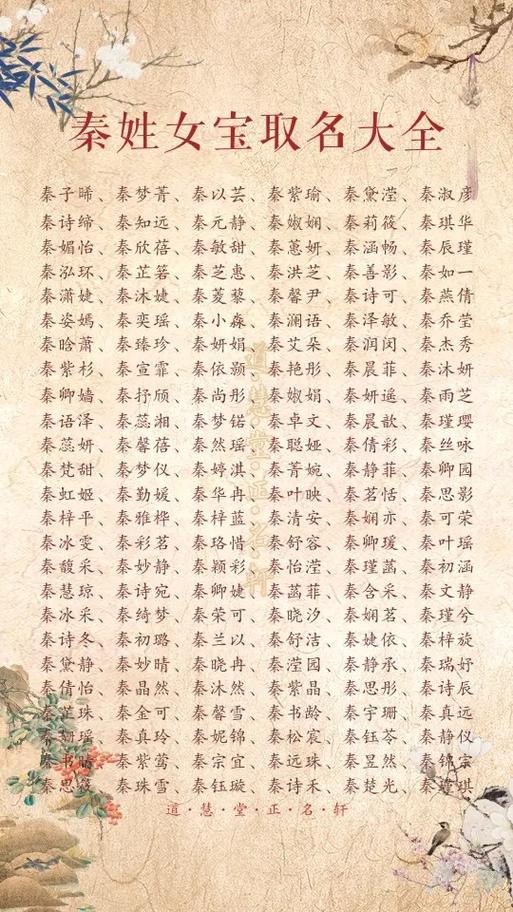 秦姓女宝取名大全
秦子晞、秦梦菁、秦以芸、秦紫瑜、秦黛滢、秦淑彦
秦诗缔、秦知远、秦元静、秦婌娴、秦莉筱、秦琪华
秦媚怡、秦欣蓓、秦敏甜、秦蕙妍、秦涵畅、秦辰瑾
秦泓环、秦芷箬、秦芝惠、秦洪芝、秦善影、秦如一
秦潇婕、秦沐婕、秦菱藜、秦馨尹、秦诗可、秦燕倩
秦姿嫣、秦奕瑶、秦小淼、秦澜语、秦泽敏、秦乔莹
秦晗萧、秦臻珍、秦妍娟、秦艾朵、秦润闵、秦杰秀
秦紫杉、秦宣霏、秦依颢、秦艳彤、秦晨菲、秦沐妍
秦卿嫱、秦抒颀、秦尚彤、秦婌娟、秦妍遥、秦雨芝
秦语泽、秦蕊湘、秦梦锘、秦卓文、秦晨歆、秦瑾璎
秦蕊妍、秦馨蓓、秦然瑶、秦聪娅、秦倩彩、秦丝咏
秦梵甜、秦梦仪、秦婷淇、秦菁婉、秦静菲、秦卿园
秦虹姬、秦勤媛、秦华冉、秦叶映、秦茗恬、秦思影
秦梓平、秦雅桦、秦梓蓝、秦清安、秦娴亦、秦可荣
秦冰雯、秦彩茗、秦珞惜、秦舒容、秦卿瑗、秦叶瑶
秦馥采、秦妙静、秦颖彩、秦怡滢、秦瑾菡、秦初涵
秦慧琼、秦诗宛、秦卿婕、秦菡菲、秦含采、秦文静
秦冰采、秦绮梦、秦荣可、秦晓汐、秦娴茗、秦瑾兮
秦诗冬、秦初璐、秦兰以、秦舒洁、秦婕依、秦梓旋
秦黛静、秦妙晴、秦晓冉、秦滢园、秦静承、秦瑞妤
秦倩怡、秦晶然、秦沐然、秦紫晶、秦思彤、秦诗辰
秦芷珠、秦金可、秦馨雪、秦书龄、秦宇珊、秦真远
秦珊瑶、秦真玲、秦妮锦、秦松宸、秦钰苓、秦静仪
秦书晴、秦紫莺、秦宗宜、秦远珠、秦昱然、秦锦宗
秦思筱、秦珠雪、秦钰璇、秦诗禾、秦楚光、秦婷琪
道·慧·堂·正·名·轩
道·慧·堂·正·名·轩